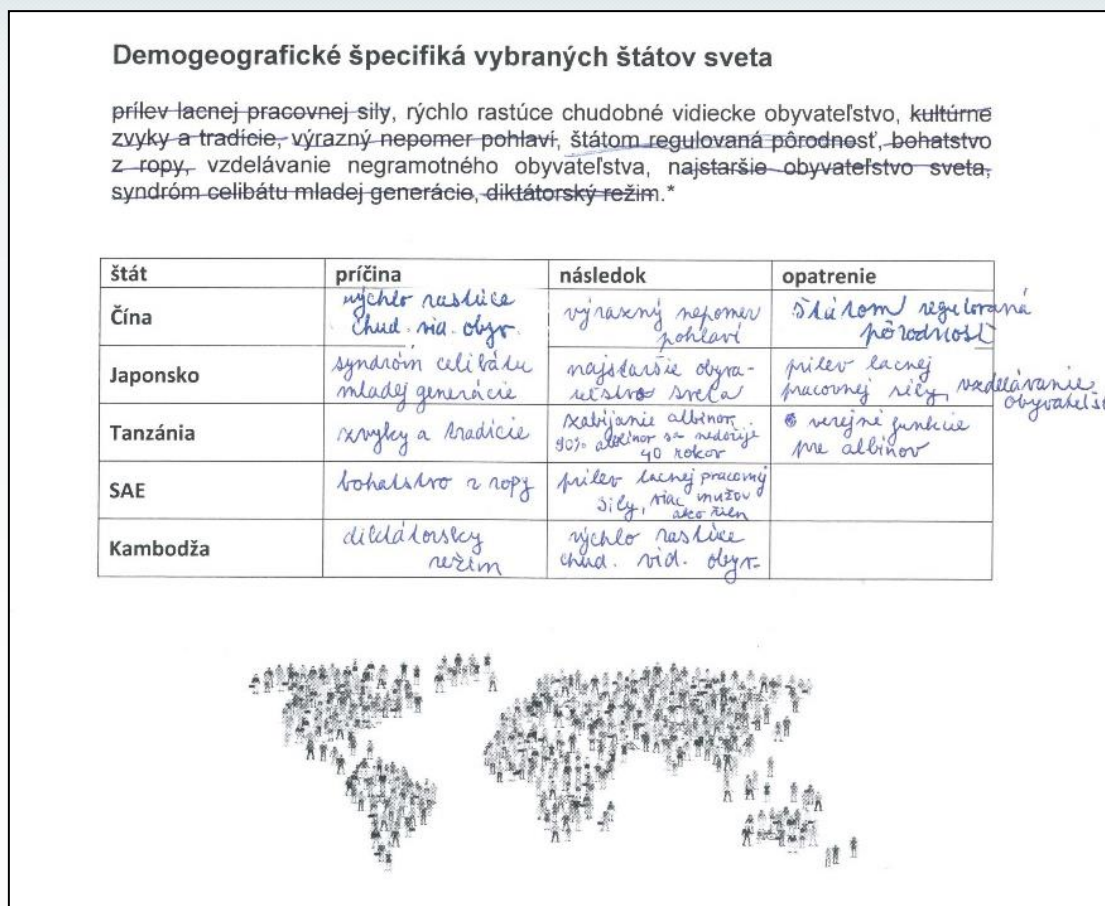 Demogeografické špecifiká vybraných štátov sveta
prílev lacnej pracovnej sily, rýchlo rastúce chudobné vidiecke obyvateľstvo, kultúrne
zvyky a tradície, výrazný nepomer pohlaví, štátom regulovaná pôrodnosť, bohatstvo
z ropy, vzdelávanie negramotného obyvateľstva, najstaršie obyvateľstvo sveta,
syndróm celibátu mladej generácie, diktátorský režim.*
štát príčina následok opatrenie
Čína
rýchlo rastúce
chud. vid. obyv.
výrazný nepomer
pohlaví
štátom regulovaná
pôrodnosť
Japonsko
syndróm celibátu
mladej generácie
najstaršie obyva-
teľstvo sveta
prílev lacnej
pracovnej sily, vzdelávanie
Tanzánia
zvyky a tradície
zabíjanie albínov
90% albínov sa nedožije
40 rokov
verejné funkcie
pre albínov
SAE
bohatstvo z ropy
prílev lacnej pracovnej
sily, viac mužov
ako žien
Kambodža
diktátorsky
režim
rýchlo rastúce
chud. vid. obyv.